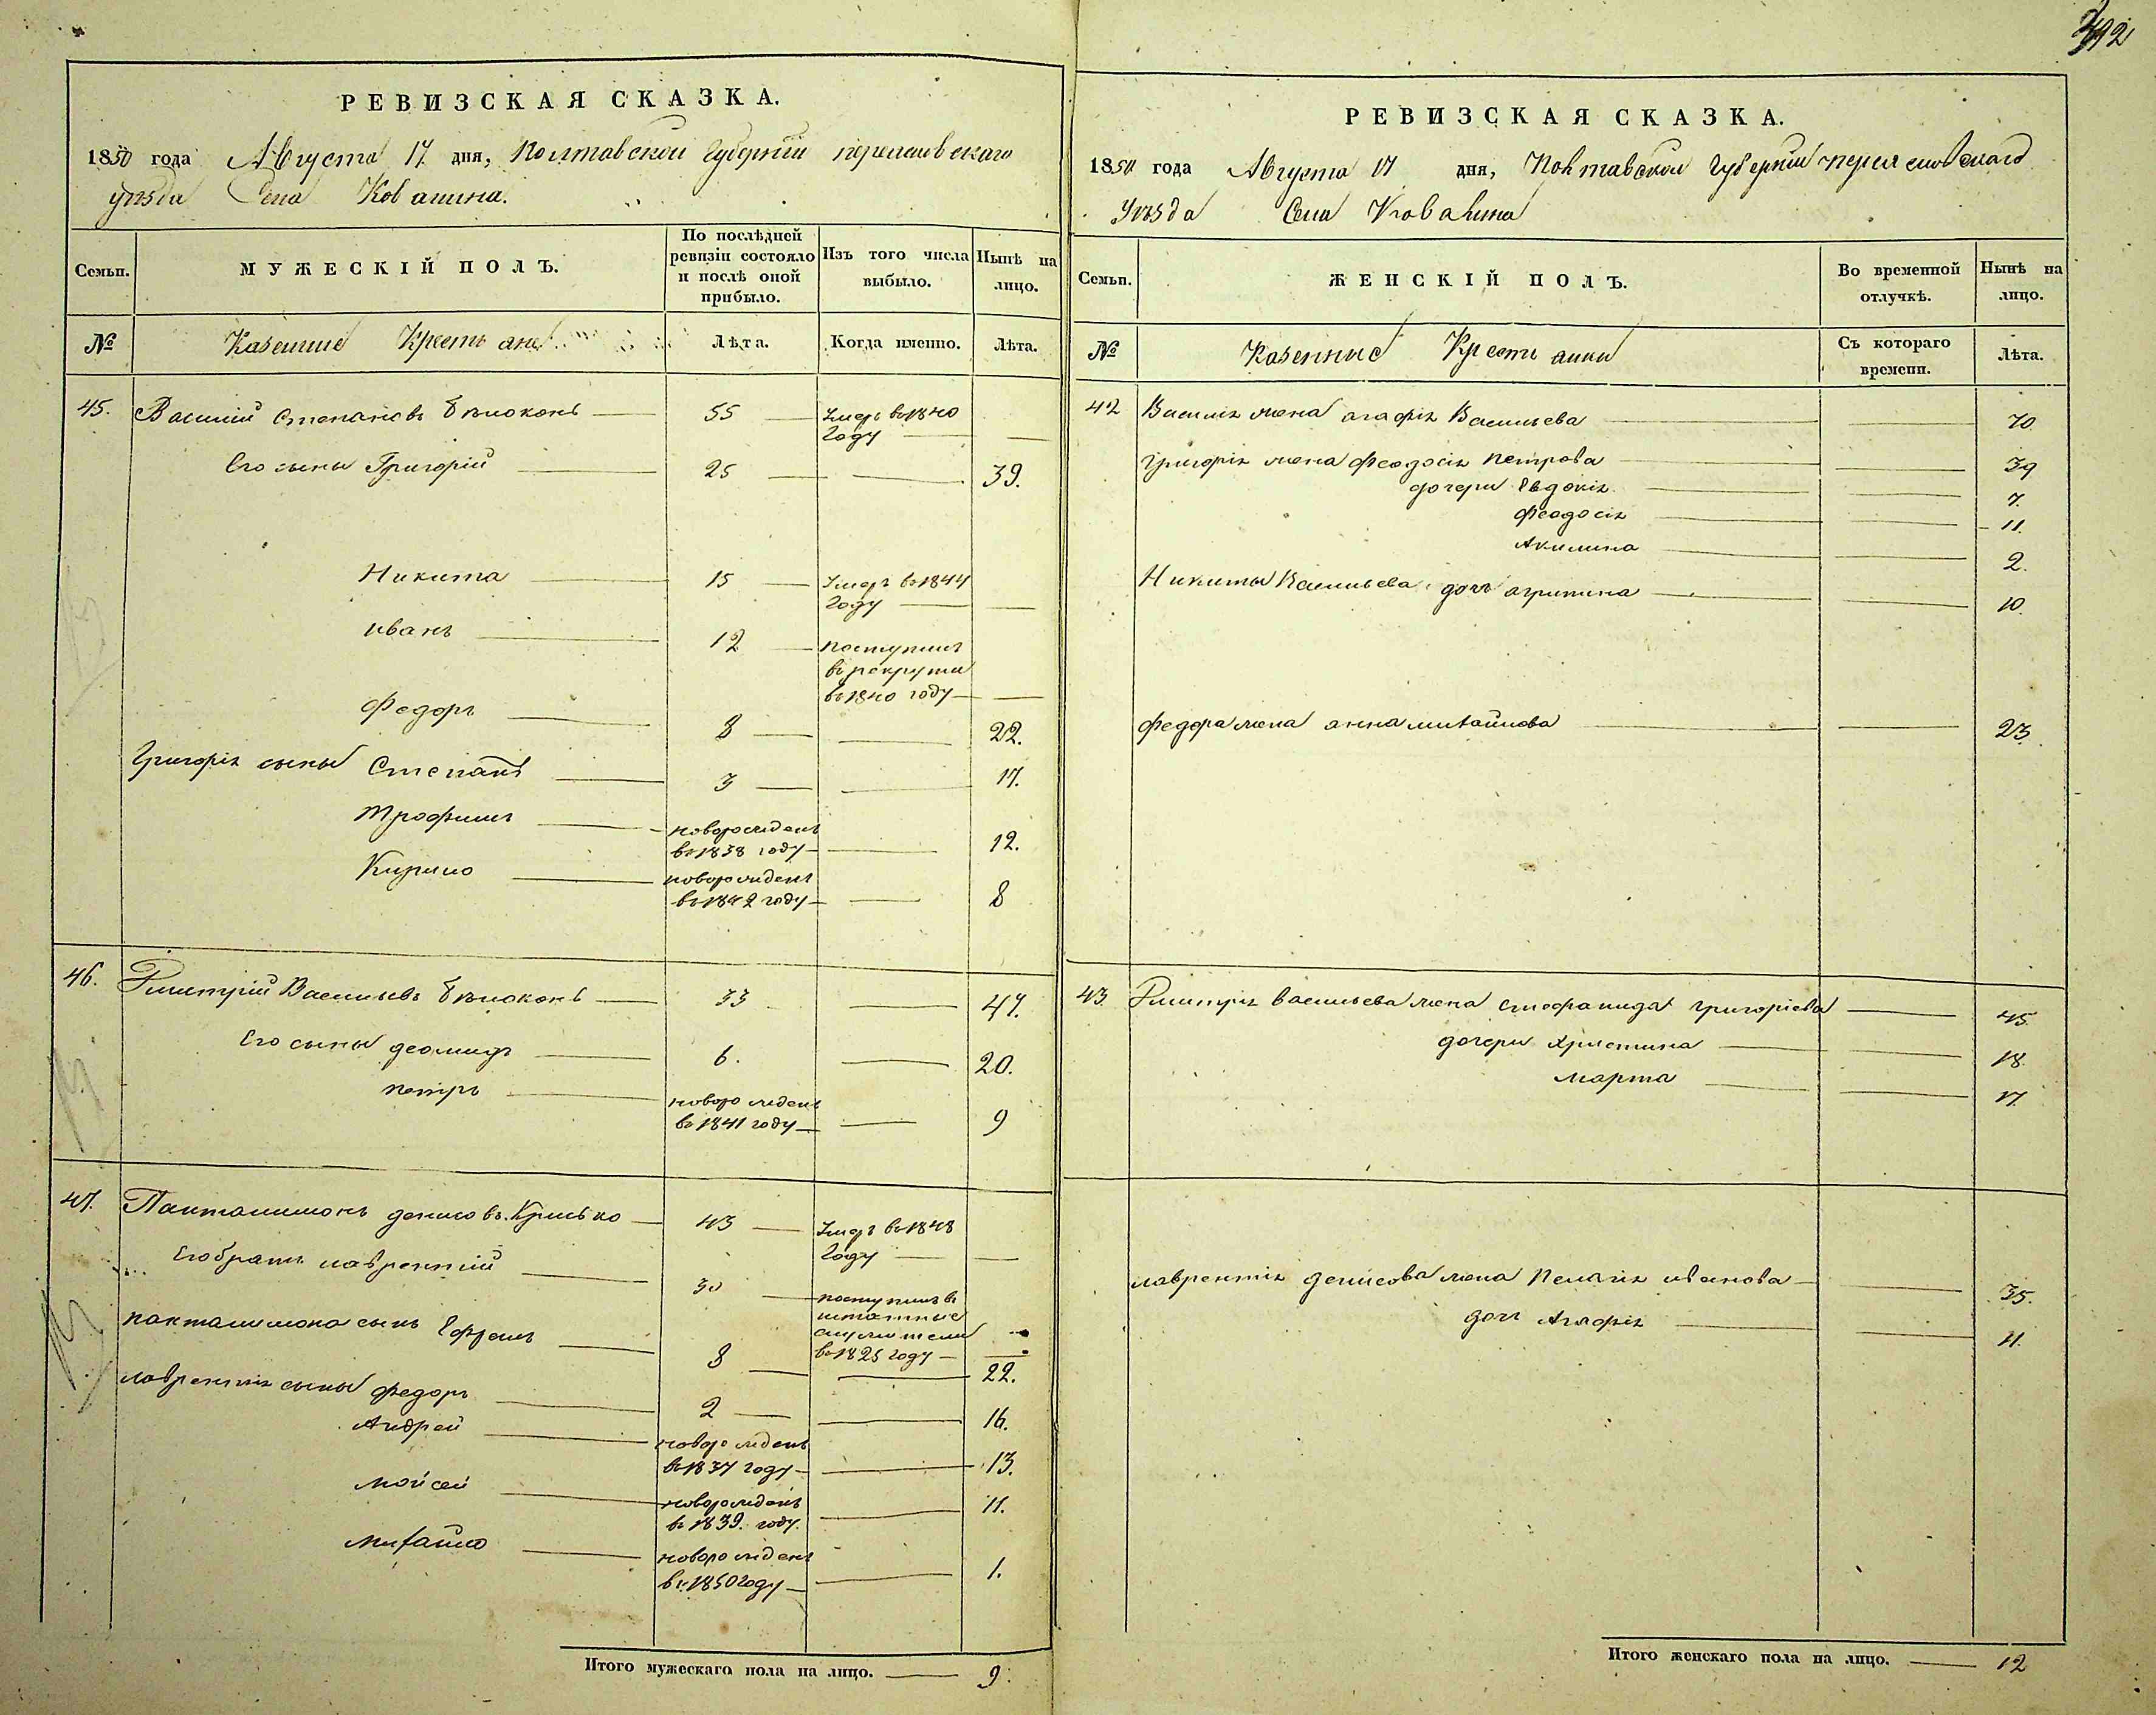 392
РЕВИЗСКАЯ СКАЗКА.
1850 года Августа 17. дня, Полтавской Губерніи переяславскаго
уѣзда Села Ковалина.
Семьи.
МУЖЕСКІЙ ПОЛЪ.
По послѣдней ревизіи состояло и послѣ оной прибыло.
Изъ того числа выбыло.
Нынѣ на лицо.
№
Казенные Крестьяне
Лѣта.
Когда именно.
Лѣта.
45. Василій Степановъ Бѣлоконь 55 Умеръ въ 1840 Году
Его сыны Григорій 25 39.
Никита 15 Умеръ въ 1844 Году
иванъ 12 поступилъ въ рекруты въ 1840 году
Федоръ 8 22.
Григорія сыны Степанъ 3 17.
Трофимъ новорожденъ въ 1838 году 12.
Кирило новорожденъ въ 1842 году 8
46. Дмитрій Васильевъ Бѣлоконь 33 47.
Его сыны деомидъ 6. 20.
петръ новорожденъ въ 1841 году 9
47. Панталимонъ денисовъ 43 Умеръ въ 1848 Году
Его братъ лаврентій 30 поступилъ въ штатные служители въ 1825 году
панталимона сынъ Ефремъ 8 22.
лаврентія сыны федоръ 2 16.
Андрей новорожденъ въ 1837 году 13.
мойсей новорожденъ въ 1839. году. 11.
михайло новорожденъ въ 1850 году 1.
Итого мужескаго пола на лицо. 9.
РЕВИЗСКАЯ СКАЗКА.
1850 года Августа 17 дня, Полтавской Губерніи переяславскаго
Уѣзда Села Ковалина
Семьи.
ЖЕНСКІЙ ПОЛЪ.
Во временной отлучкѣ.
Нынѣ на лицо.
№
Казенные Крестьянки
Съ котораго времени.
Лѣта.
42 Василія жена агафія Васильева 70.
Григорія жена феодосія петрова 39
дочери Евдокія 7.
феодосія 11.
Акилина 2.
Никиты Васильева дочь агрипина 10.
федора жена анна михайлова 23.
43. Дмитрія васильева жена стефанида григоріева 45.
дочери христина 18.
марта 17.
лаврентія денисова жена Пелагія иванова 35.
дочь Агафія 11.
Итого женскаго пола на лицо. 12